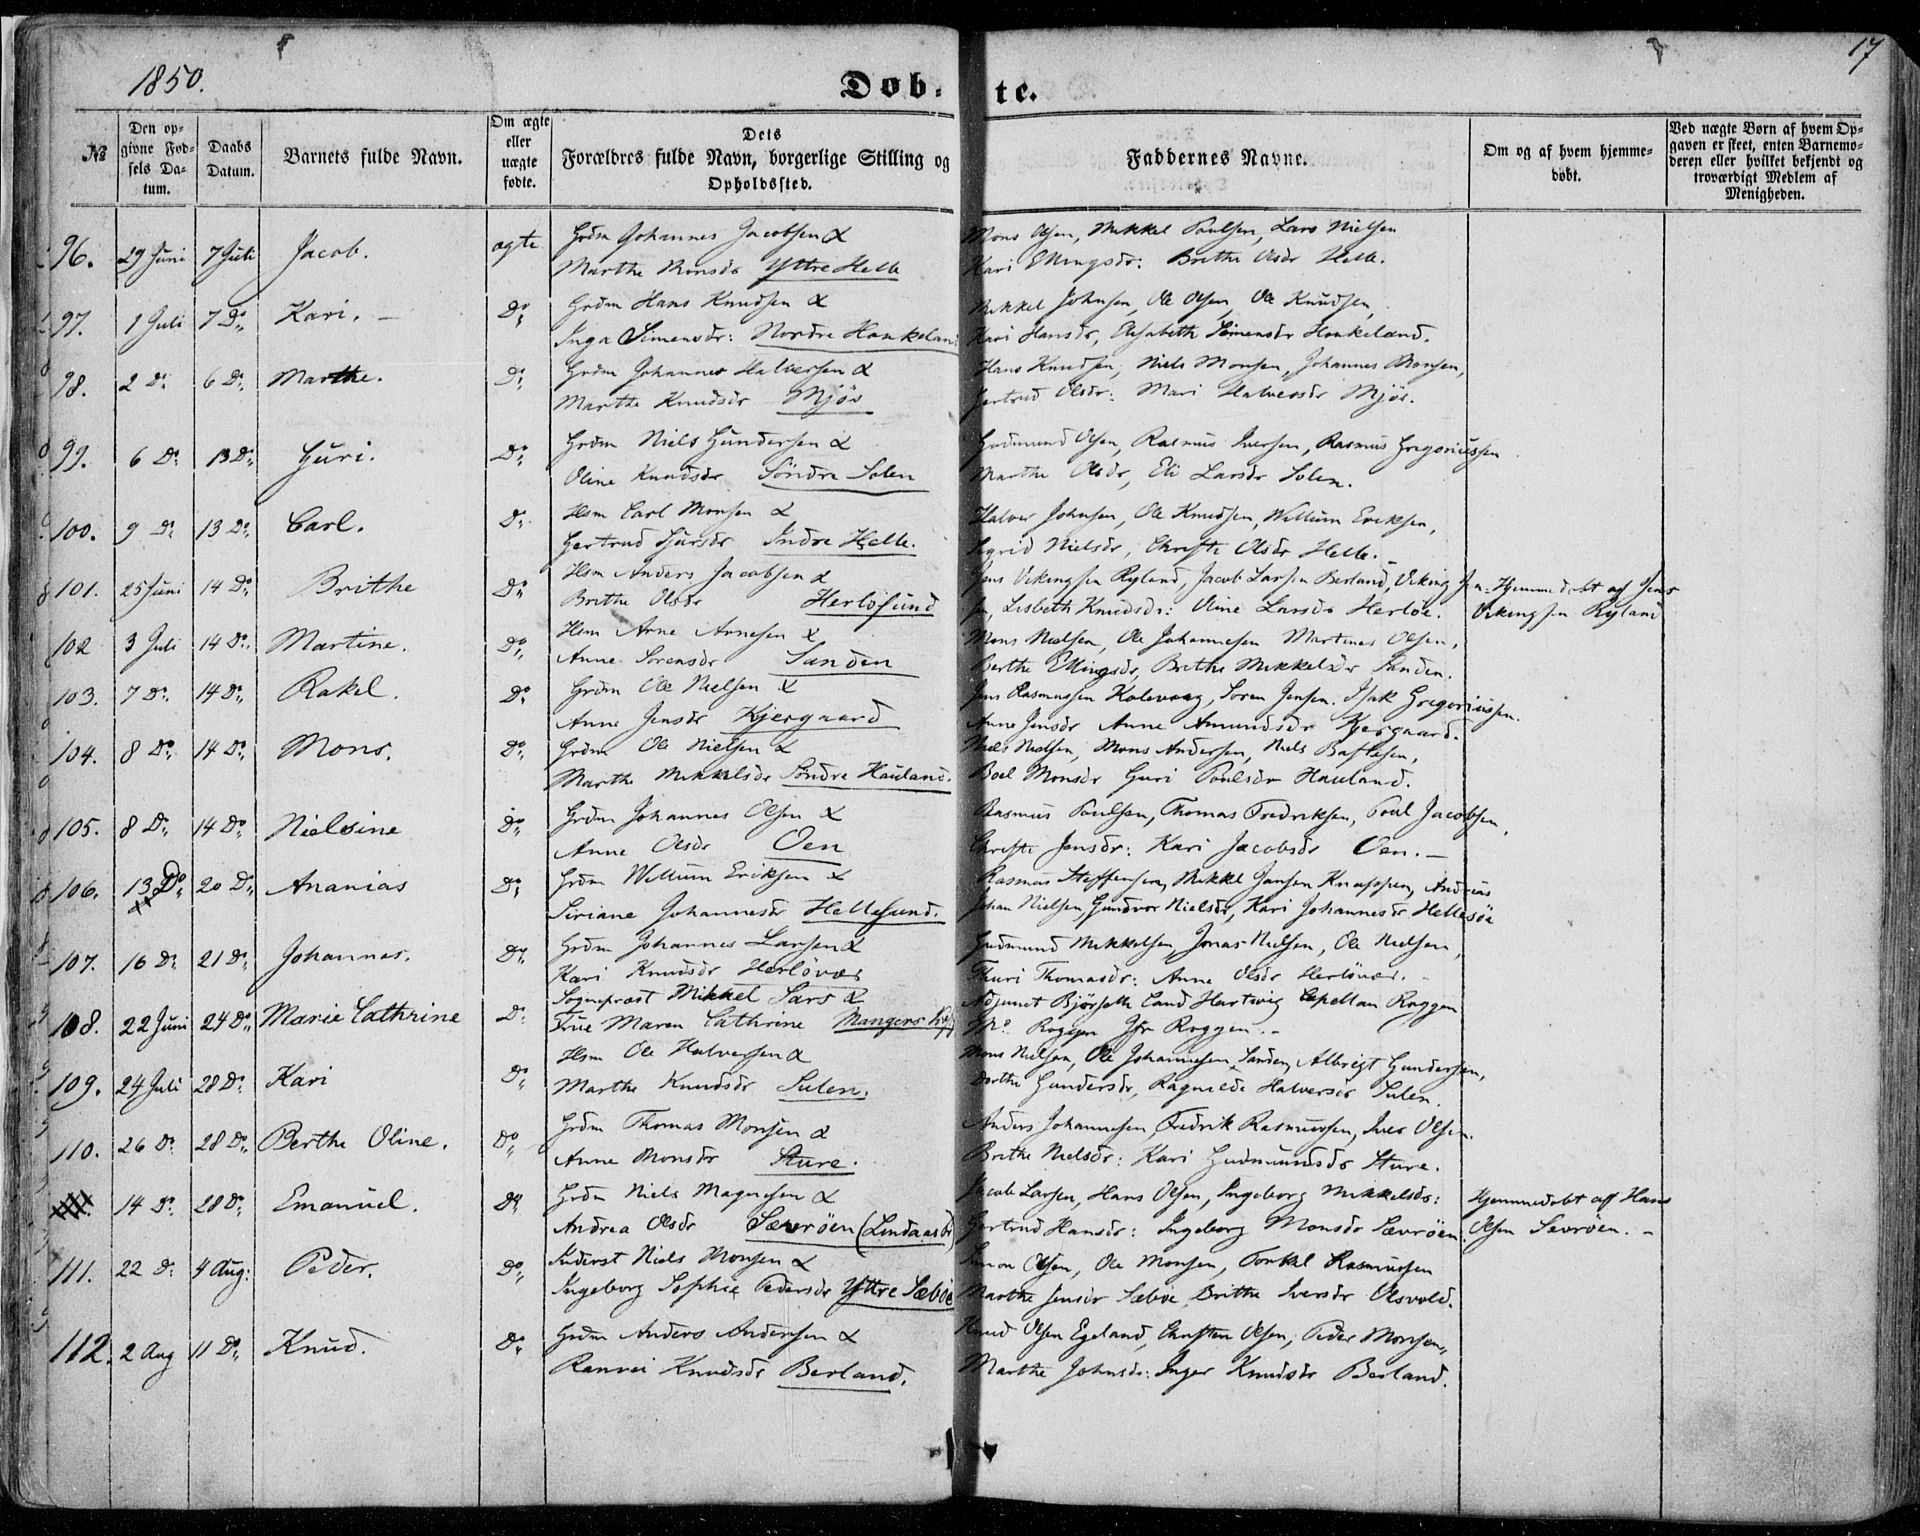 1850.
Døb-
te.
17
№
Den op-
givne Fød-
sels Da-
tum.
Daabs
Datum.
Barnets fulde Navn.
Om ægte
eller
uægte
fødte.
Dets
Forældres fulde Navn, borgerlige Stilling og
Opholdssted.
Faddernes Navne.
Om og af hvem hjemme-
døbt.
Ved uægte Børn af hvem Op-
gaven er skeet, enten Barnemo-
deren eller hvilket bekjendt og
troværdigt Medlem af
Menigheden.
96. 29 Juni 7 Juli Jacob. ægte Grdm Johannes Jacobsen & Mons Olsen, Mikkel Poulsen, Lars Nielsen
Marthe Monsdr Yttre Helle Kari Ellingsdr: Brithe Olsdr Helle.
97. 1 Juli 7 Do Kari. — Do Grdm Hans Knudsen & Mikkel Johnsen, Ole Olsen, Ole Knudsen,
Inga Simensdr: Nordre Hankeland Kari Hansdr, Elisabeth Simensdr Hankeland.
98. 2 Do 6 Do Marthe. Do Grdm Johannes Halversen & Hans Knudsen, Niels Monsen, Johannes Monsen,
Marthe Knudsdr Mjös Gertrud Olsdr: Mari Halversdr Mjös.
99. 6 Do 13 Do Guri. Do Grdm Niels Gundersen & Gudmund Olsen, Rasmus Iversen, Rasmus Gregoriussen
Oline Knudsdr Söndre Solen Marthe Olsdr, Eli Larsdr Solen.
100. 9 Do 13 Do Carl. Do Hsm Carl Monsen & Halver Johnsen, Ole Knudsen, Willum Eriksen,
Gertrud Sjursdr Indre Helle. Sigrid Nielsdr, Christe Olsdr Helle. —
101. 25 Juni 14 Do Brithe Do Hsm Anders Jacobsen & Jens Vikingsen Ryland, Jacob Larsen Berland, Viking Jen- Hjemmedøbt af Jens
Brithe Olsdr Herlösund sen, Lisbeth Knudsdr: Oline Larsdr Herlöe. Vikingsen Ryland
102 3 Juli 14 Do Martine. Do Hsm Arne Arnesen & Mons Nielsen, Ole Johannesen Martinus Olsen,
Anne Sorensdr Sanden Berthe Ellingsdr, Brithe Mikkelsdr Sanden.
103. 7 Do 14 Do Rakel. Do Grdm Ole Nielsen & Jens Rasmussen Kolevaag, Soren Jensen. Isak Gregoriussen.
Anne Jensdr Kjergaard Anne Jensdr Anne Amundsdr Kjergaard.
104. 8 Do 14 Do Mons. Do Grdm Ole Nielsen & Niels Nielsen, Mons Andersen, Niels Bastesen,
Marthe Mikkelsdr Söndre Hauland. Boel Monsdr Guri Poulsdr Hauland.
105. 8 Do 14 Do Nielsine Do Grdm Johannes Olsen & Rasmus Poulsen, Thomas Fredriksen, Poul Jacobsen,
Anne Olsdr Oen Christe Jensdr: Kari Jacobsdr Oen. —
106. 13 Do 20 Do Ananias Do Grdm Willum Eriksen & Rasmus Steffensen, Mikkel Jansen Knappen, Andreas
Siriane Johannesdr Hellesund. Johan Nielsen, Gundvor Nielsdr, Kari Johannesdr Hellesöe
107. 16 Do 21 Do Johannes. Do Grdm Johannes Larsen & Gudmund Mikkelsen, Jonas Nielsen, Ole Nielsen,
Kari Knudsdr Herlövær Thuri Thomasdr: Anne Olsdr Herlövær. —
108. 22 Juni 24 Do Marie Cathrine Do Sognepræst Mikkel Sars & Adjunct Björseth Cand Hartvig Capellan Roggen
Frue Maren Cathrine Mangers Roggen Jfr Roggen. —
109. 24 Juli 28 Do Kari Do Hsm Ole Halversen & Mons Nielsen, Ole Johannesen Sanden, Albrigt Gundersen,
Marthe Knudsdr Sulen. Dorthe Gundersdr, Ragnilde Halversdr Sulen.
110. 26 Do 28 Do Berthe Oline. Do Grdm Thomas Monsen & Anders Johannesen, Fredrik Rasmussen, Iver Olsen.
Anne Monsdr Sture. Brithe Nielsdr: Kari Gudmundsdr Sture.
14 Do 28 Do Emanuel. Do Grdm Niels Magnesen & Jacob Larsen, Hans Olsen, Ingeborg Mikkelsdr: Hjemmedøbt af Hans
Andrea Olsdr Sævröen (Lindaas Gertrud Hansdr: Ingeborg Monsdr Sævröen. Olsen Sevröen. —
111. 22 Do 4 Aug: Peder. Do Inderst Niels Monsen & Simon Olsen, Ole Monsen, Torkel Rasmussen
Ingeborg Sophia Pedersdr Yttre Sæböe Marthe Jensdr Sæböe Brithe Iversdr Olsvold.
112. 2 Aug 11 Do Knud. Do Grdm Anders Andersen & Knud Olsen Egeland, Christen Olsen, Peder Monsen,
Ranvei Knudsdr Berland. Marthe Johnsdr: Inger Knudsdr Berland.